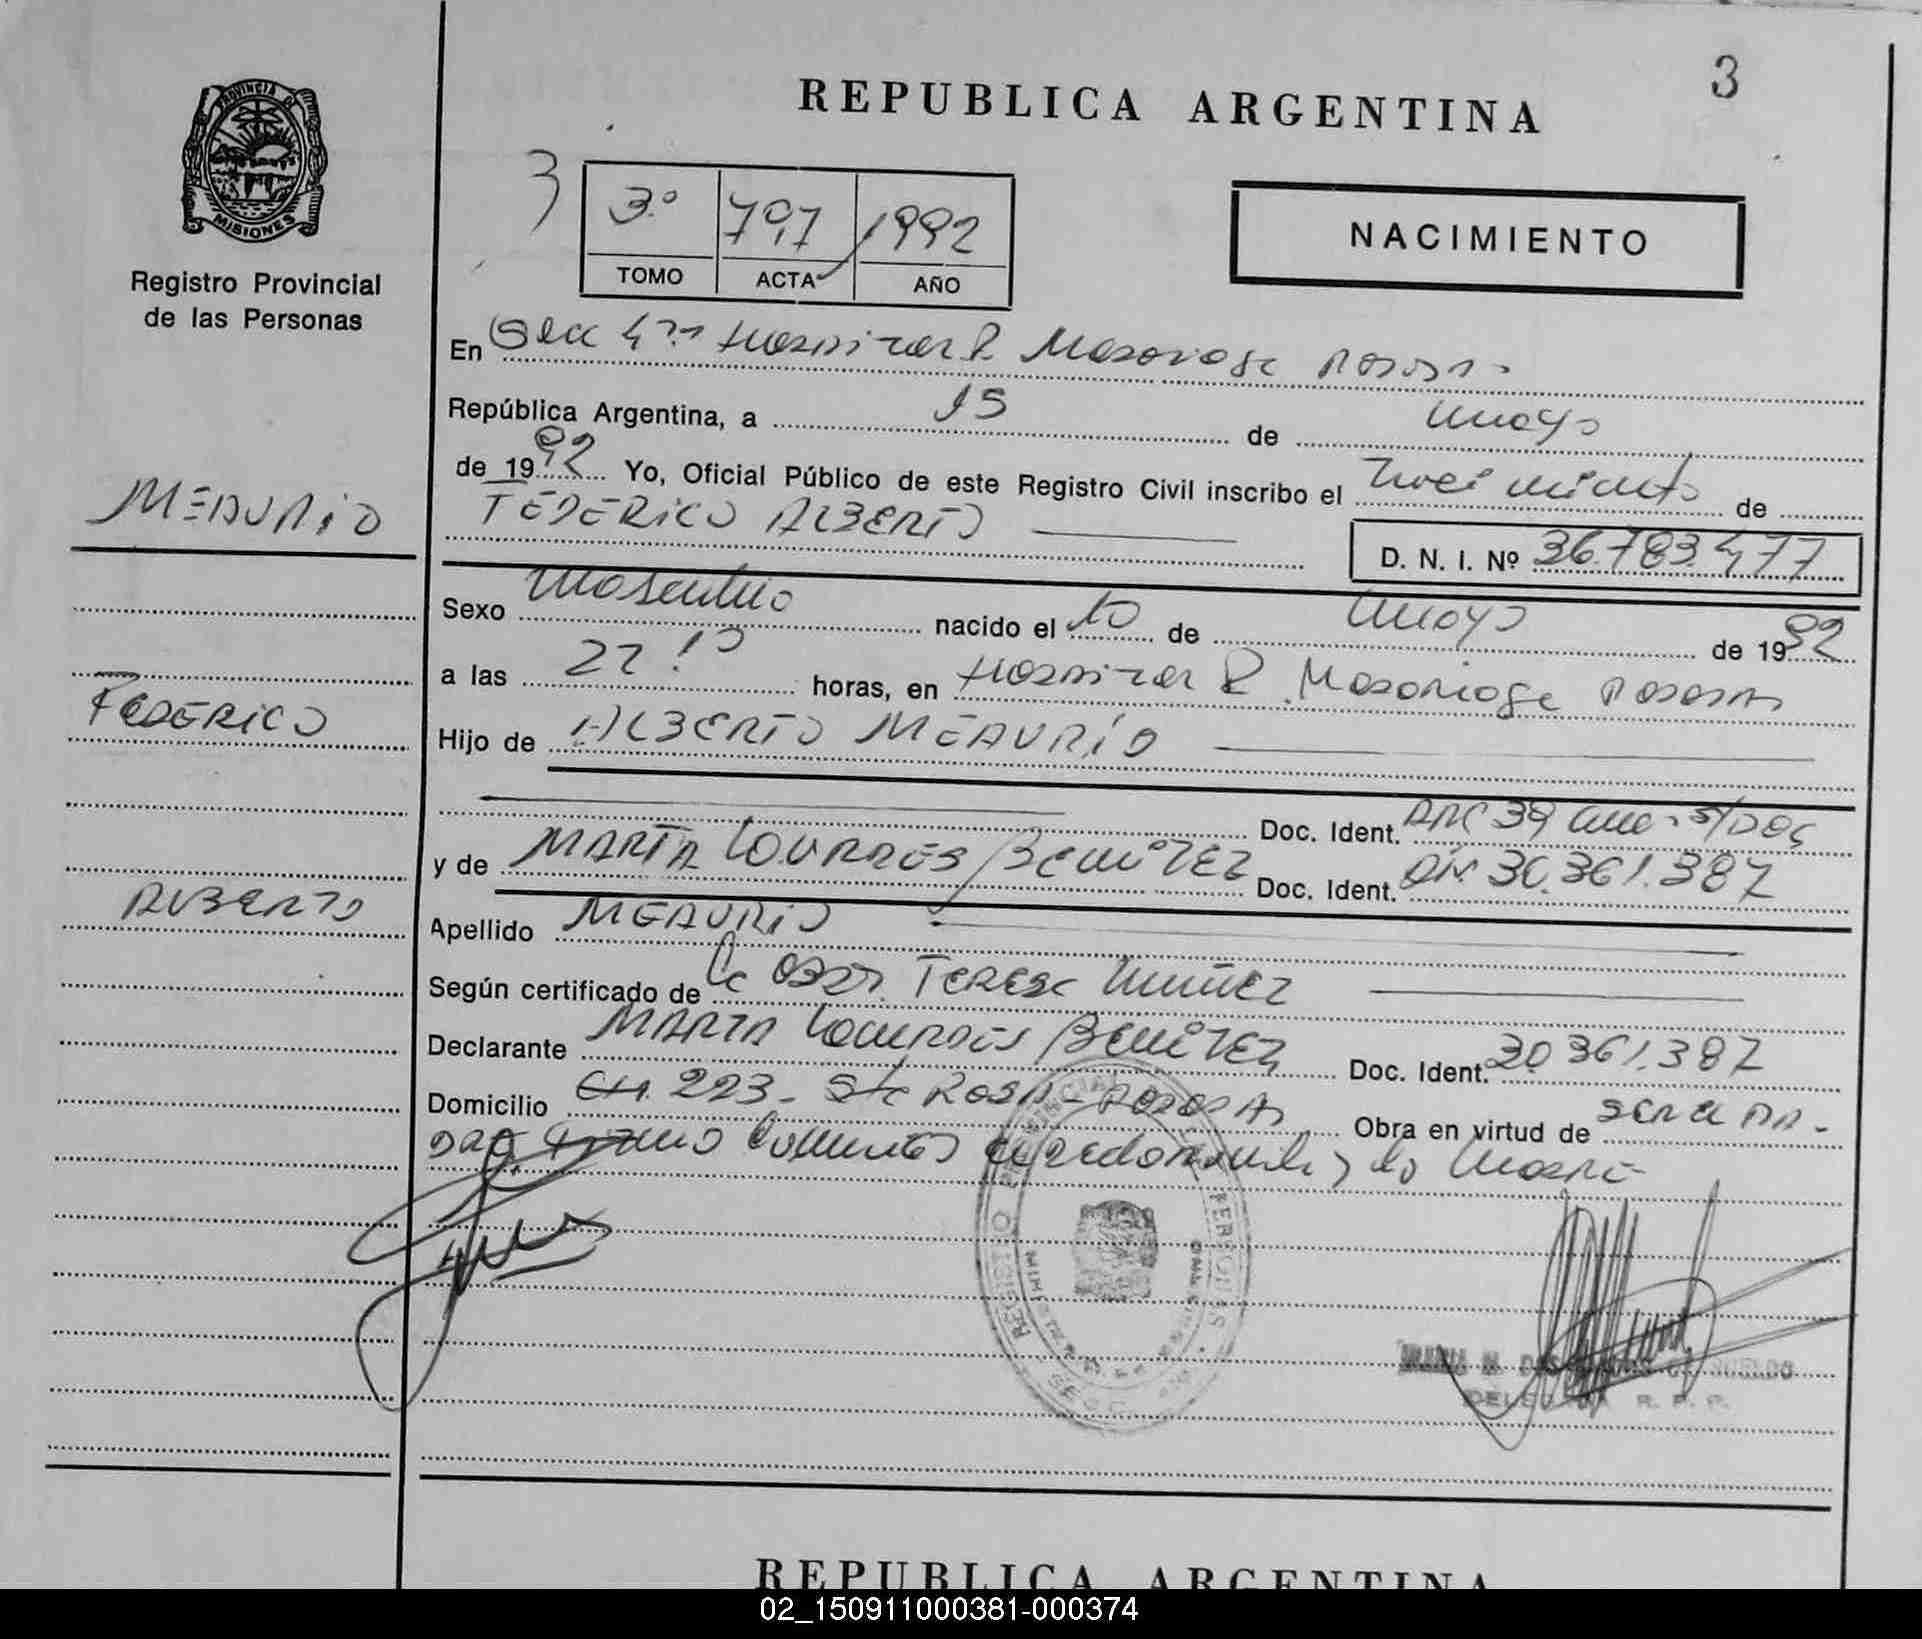 REPUBLICA ARGENTINA
3
PROVINCIA DE
MISIONES
Registro Provincial
de las Personas
3
3.º 797 1992
TOMO ACTA AÑO
NACIMIENTO
En Secc 4ta Hospital R. Madariaga Posadas
República Argentina, a 15 de mayo
de 1992 Yo, Oficial Público de este Registro Civil inscribo el nacimiento de
FEDERICO ALBERTO
D. N. I. Nº 36.783.477
MEAURIO
Sexo masculino nacido el 10 de mayo de 1992
a las 22 horas, en Hospital R. Madariaga Posadas
FEDERICO
Hijo de ALBERTO MEAURIO
Doc. Ident. 39
y de MARTA LOURDES BENITEZ Doc. Ident. 30.361.387
ALBERTO
Apellido MEAURIO
Según certificado de la Obst. TERESA
Declarante MARTA Lourdes BENITEZ Doc. Ident. 30.361.387
Domicilio CH. 223 - Sta ROSA - POSADAS Obra en virtud de ser el PA-
y la Madre
DELEGADA R. P. P.
REPUBLICA ARGENTINA
02_150911000381-000374